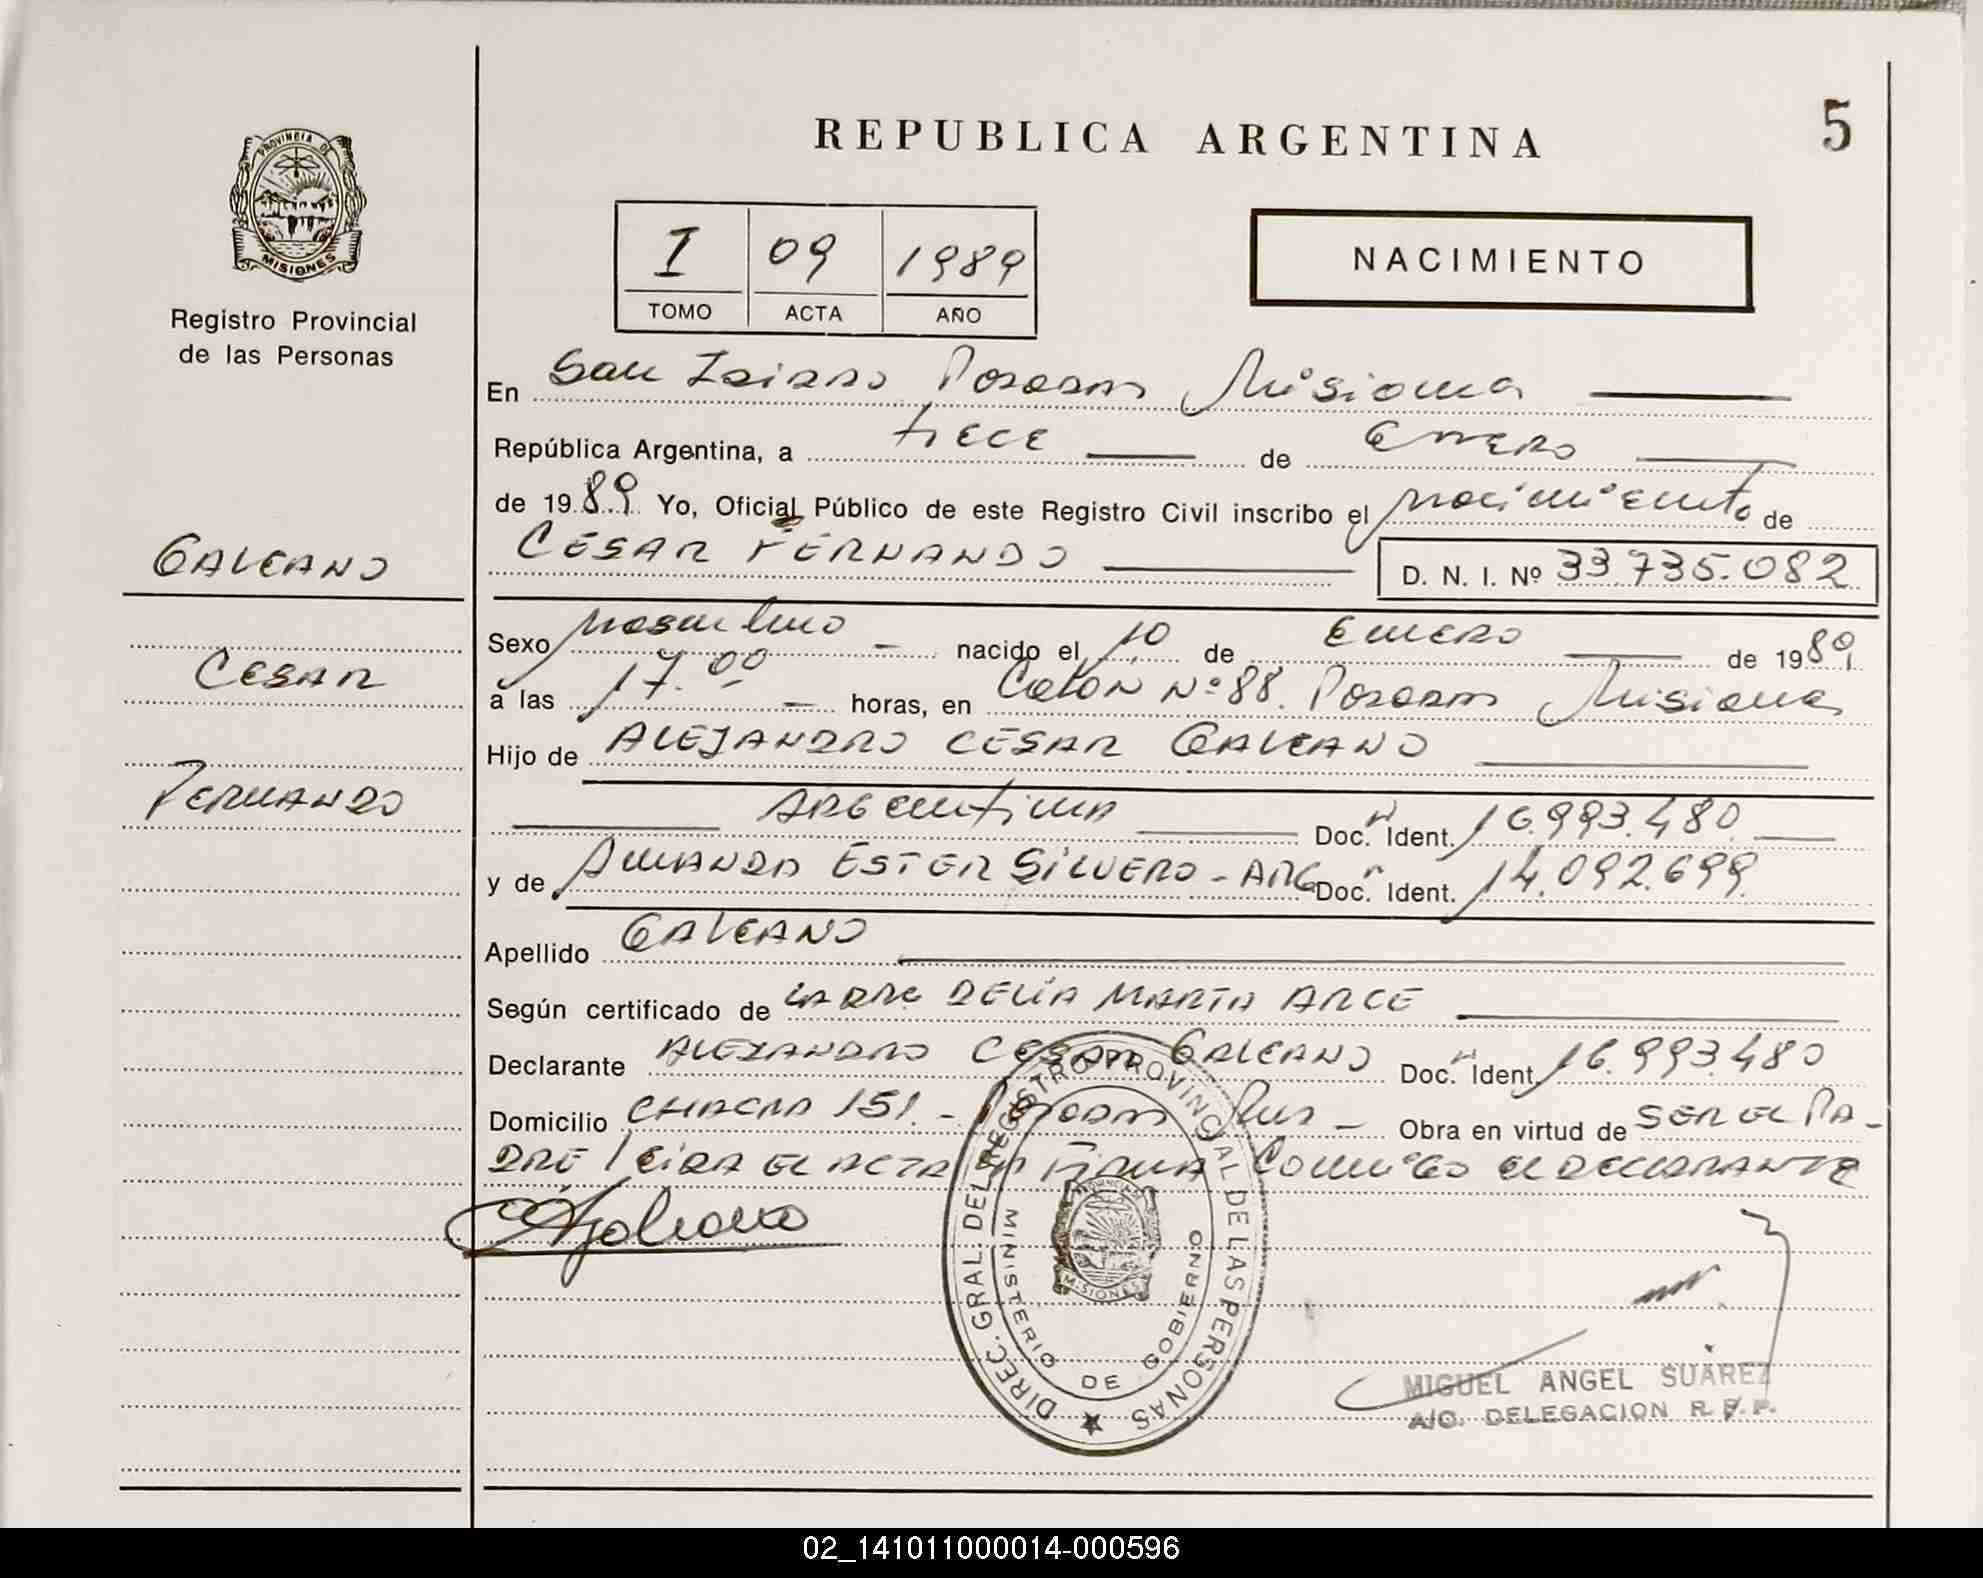 REPUBLICA ARGENTINA
5
PROVINCIA DE
MISIONES
Registro Provincial
de las Personas
I 09 1989
TOMO ACTA AÑO
NACIMIENTO
En San Isidro Posadas Misiones
República Argentina, a trece de Enero
de 1989 Yo, Oficial Público de este Registro Civil inscribo el nacimiento de
CESAR FERNANDO D. N. I. Nº 33.735.082
GALEANO
CESAR
FERNANDO
Sexo masculino nacido el 10 de Enero de 1989
a las 17.00 horas, en Colón Nº 88. Posadas Misiones
Hijo de ALEJANDRO CESAR GALEANO
Argentina Doc. Ident. 16.993.480
y de AMANDA ESTER SILVERO - ARG Doc. Ident. 14.092.699
Apellido GALEANO
Según certificado de LA DRA DELIA MARTA ARCE
Declarante ALEJANDRO CESAR GALEANO Doc. Ident. 16.993.480
Domicilio CHACRA 151. - Posadas Mis - Obra en virtud de SER EL PA-
DRE LEIDA EL ACTA LA FIRMA CONMIGO EL DECLARANTE
DIREC. GRAL. DEL REGISTRO PROVINCIAL DE LAS PERSONAS
MINISTERIO DE GOBIERNO
MISIONES
MIGUEL ANGEL SUAREZ
A/C. DELEGACION R. P. P.
02_141011000014-000596